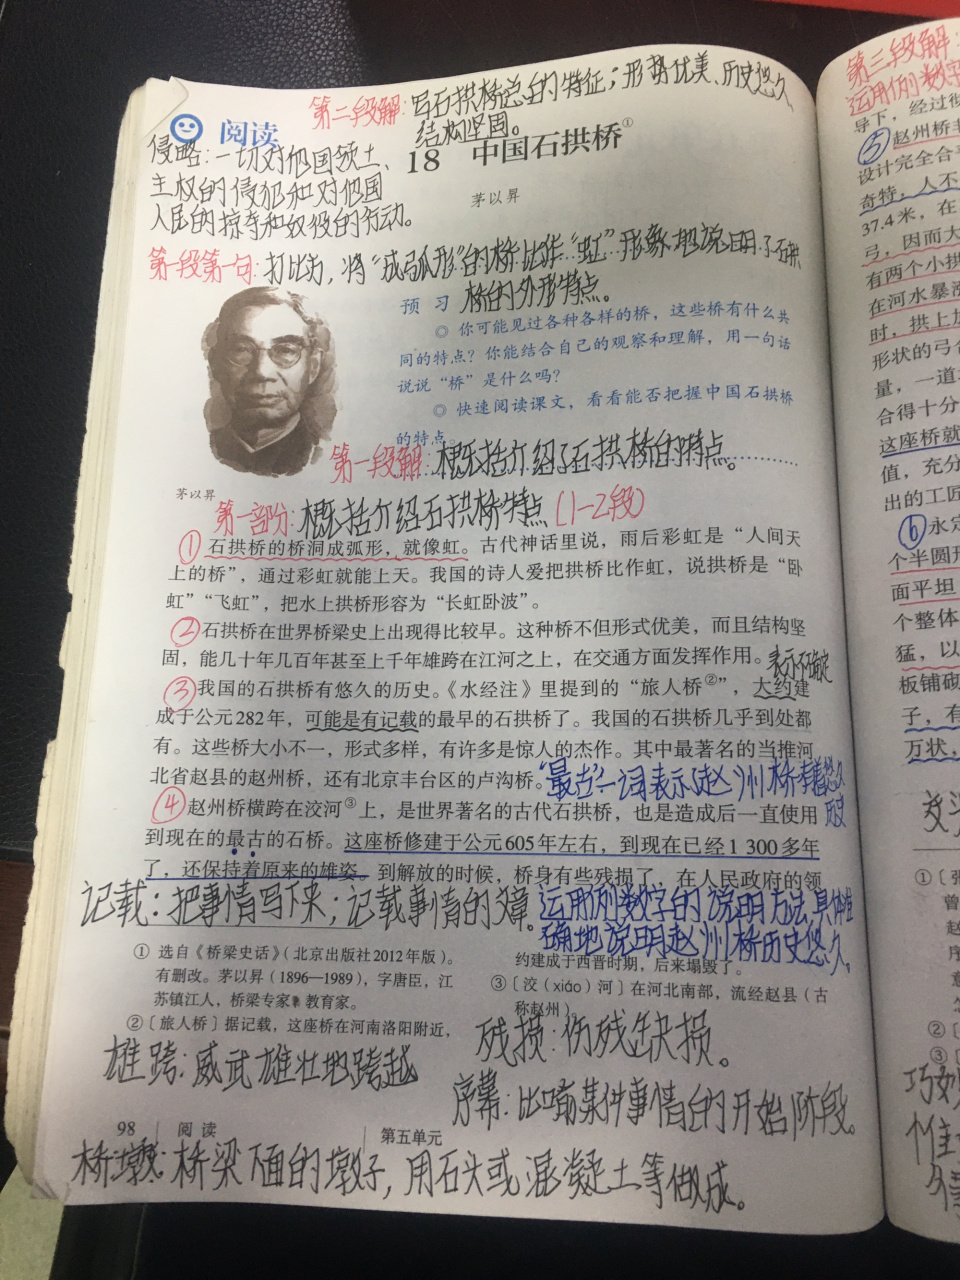 第二段解:写石拱桥总的特征;形势优美、历史悠久
结构坚固。
阅读
18 中国石拱桥①
侵略:一切对他国领土、
主权的侵犯和对他国
人民的掠夺和奴役的行动。
茅以昇
第一段第一句:打比方,将“成弧形”的桥比作“虹”形象地说明了石拱
桥的外形特点。
预 习
◎ 你可能见过各种各样的桥,这些桥有什么共
同的特点?你能结合自己的观察和理解,用一句话
说说“桥”是什么吗?
◎ 快速阅读课文,看看能否把握中国石拱桥
的特点。
第一段解:概括介绍了石拱桥的特点。
茅以昇
第一部分:概括介绍石拱桥特点(1-2段)
①石拱桥的桥洞成弧形,就像虹。古代神话里说,雨后彩虹是“人间天
上的桥”,通过彩虹就能上天。我国的诗人爱把拱桥比作虹,说拱桥是“卧
虹”“飞虹”,把水上拱桥形容为“长虹卧波”。
②石拱桥在世界桥梁史上出现得比较早。这种桥不但形式优美,而且结构坚
固,能几十年几百年甚至上千年雄跨在江河之上,在交通方面发挥作用。
表示不确定
③我国的石拱桥有悠久的历史。《水经注》里提到的“旅人桥②”,大约建
成于公元282年,可能是有记载的最早的石拱桥了。我国的石拱桥几乎到处都
有。这些桥大小不一,形式多样,有许多是惊人的杰作。其中最著名的当推河
北省赵县的赵州桥,还有北京丰台区的卢沟桥。
“最古”一词表示赵州桥有着悠久
历史
④赵州桥横跨在洨河③上,是世界著名的古代石拱桥,也是造成后一直使用
到现在的最古的石桥。这座桥修建于公元605年左右,到现在已经1 300多年
了,还保持着原来的雄姿。到解放的时候,桥身有些残损了,在人民政府的领
记载:把事情写下来;记载事情的文章。
运用列数字的说明方法,具体准
确地说明赵州桥历史悠久。
① 选自《桥梁史话》(北京出版社2012年版)。
有删改。茅以昇(1896—1989),字唐臣,江
苏镇江人,桥梁专家、教育家。
②〔旅人桥〕据记载,这座桥在河南洛阳附近,
约建成于西晋时期,后来塌毁了。
③〔洨(xiáo)河〕在河北南部,流经赵县(古
称赵州)。
雄跨:威武雄壮地跨越
残损:伤残缺损。
序幕:比喻某件事情的开始阶段。
98 阅读 第五单元
桥墩:桥梁下面的墩子,用石头或混凝土等做成。
第三段解:
运用列数字
导下,经过彻
⑤赵州桥非
设计完全合乎
奇特,人不
37.4米,在
弓,因而大
有两个小拱
在河水暴涨
时,拱上加
形状的弓合
量,一道
合得十分
这座桥就
值,充分
出的工匠
⑥永定
个半圆形
面平坦
个整体
猛,以
板铺砌
子,有
万状,
①〔张
曾
赵
序
意
②〔
③〔
巧妙
惟